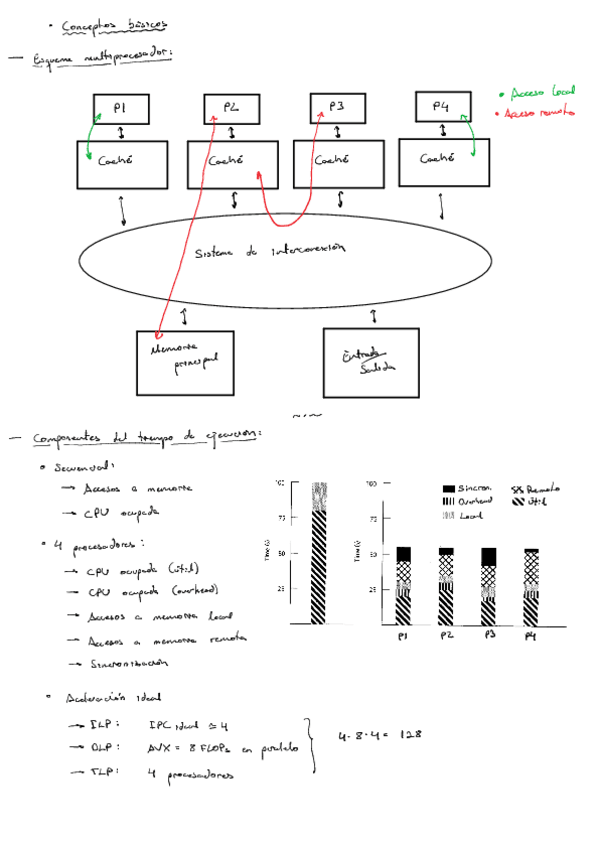 • Conceptos básicos
— Esquema multiprocesador:
P1 P2 P3 P4
• Acceso local
• Acceso remoto
Caché Caché Caché Caché
Sistema de interconexión
Memoria
principal
Entrada
Salida
— Componentes del tiempo de ejecución:
• Secuencial:
→ Accesos a memoria
→ CPU ocupada
• 4 procesadores:
→ CPU ocupada (útil)
→ CPU ocupada (overhead)
→ Accesos a memoria local
→ Accesos a memoria remota
→ Sincronización
Time (s)
100
75
50
25
Time (s)
100
75
50
25
Sincron. Remoto
Overhead útil
Local
P1 P2 P3 P4
• Aceleración ideal
→ ILP: IPC ideal ≃ 4
→ DLP: AVX = 8 FLOPs en paralelo
→ TLP: 4 procesadores
4·8·4 = 128